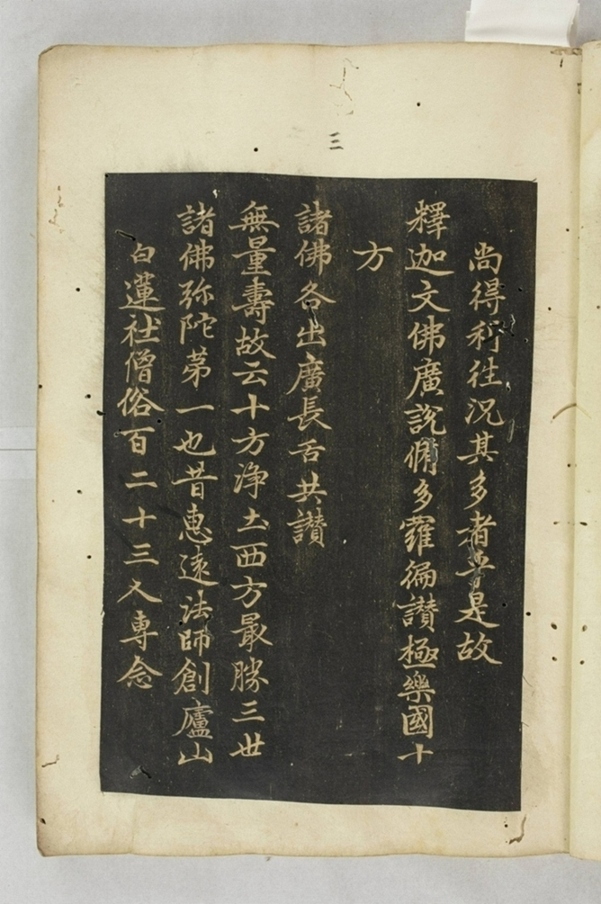 三
尚得利徃況其多者乎是故
釋迦文佛廣說脩多羅徧讃極樂國十
方
諸佛各出廣長舌共讃
無量壽故云十方淨土西方最勝三世
諸佛弥陀苐一也昔惠遠法師創廬山
白蓮社僧俗百二十三人專念